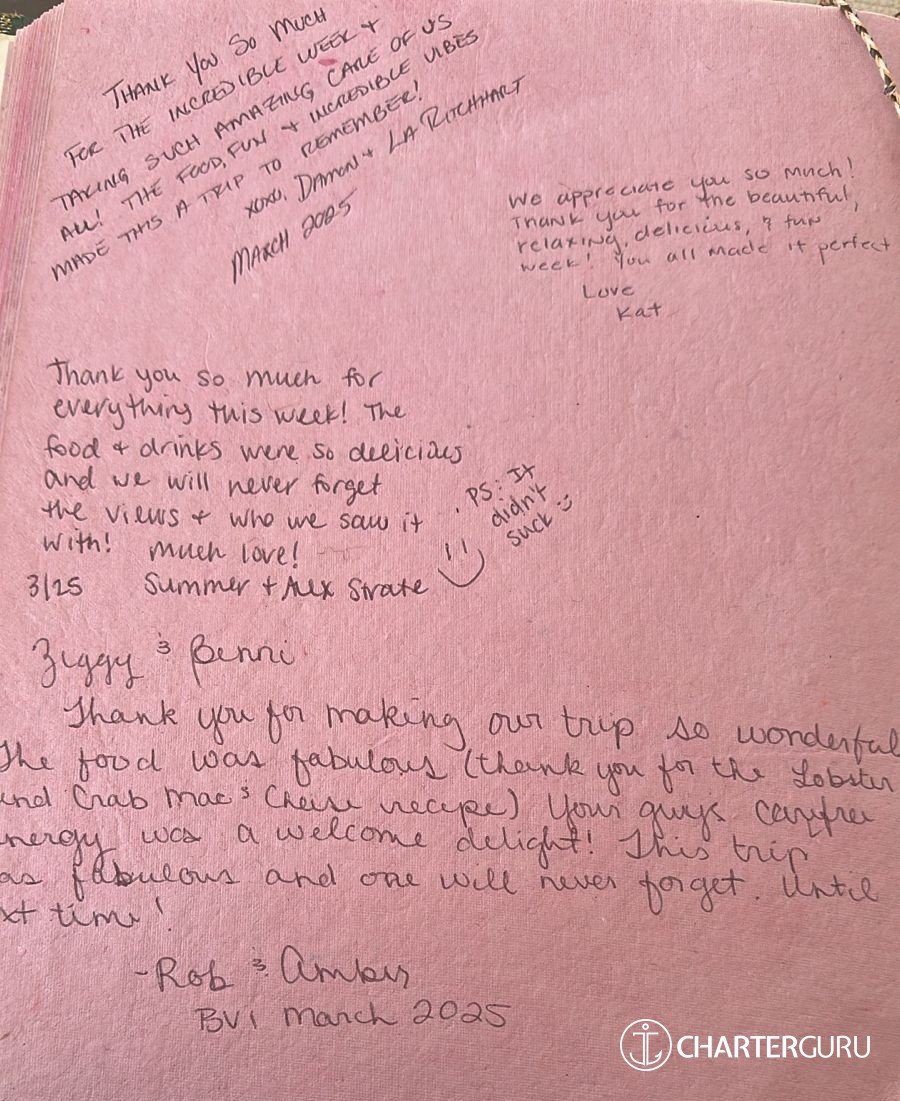 THANK YOU SO MUCH
FOR THE INCREDIBLE WEEK +
TAKING SUCH AMAZING CARE OF US
ALL! THE FOOD, FUN + INCREDIBLE VIBES
MADE THIS A TRIP TO REMEMBER!
XOXO, DAMON + LA RITCHHART
MARCH 2025
We appreciate you so much!
Thank you for the beautiful,
relaxing, delicious, & fun
week! You all made it perfect
Love
Kat
Thank you so much for
everything this week! The
food + drinks were so delicious
and we will never forget
the views + who we saw it
with! Much love!
3/25 Summer + Alex Strate
PS: It
didn't
suck :)
Ziggy & Benni
Thank you for making our trip so wonderful
The food was fabulous (thank you for the Lobster
and Crab Mac & Cheese recipe) Your guys carefree
nergy was a welcome delight! This trip
as fabulous and one will never forget. Until
xt time!
-Rob & Amber
BVI March 2025
CHARTERGURU